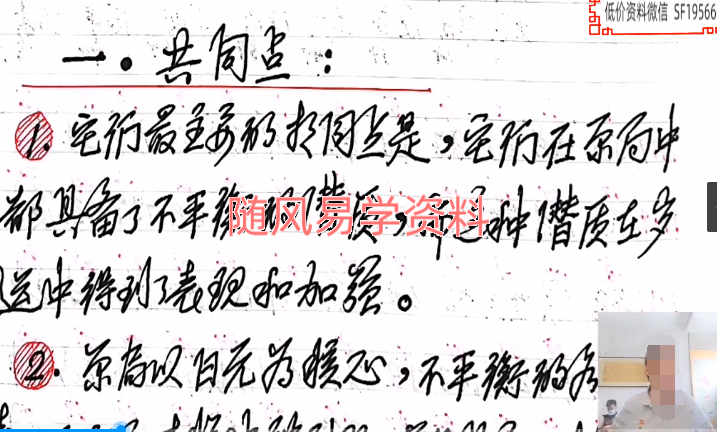 低价资料微信 SF19566
一。共同点：
1. 它们最主要的共同点是，它们在原局中
都具备了不平衡的潜质，而这种潜质在岁
运中得到了表现和加强。
随风易学资料
2. 原局以日元为核心，不平衡的